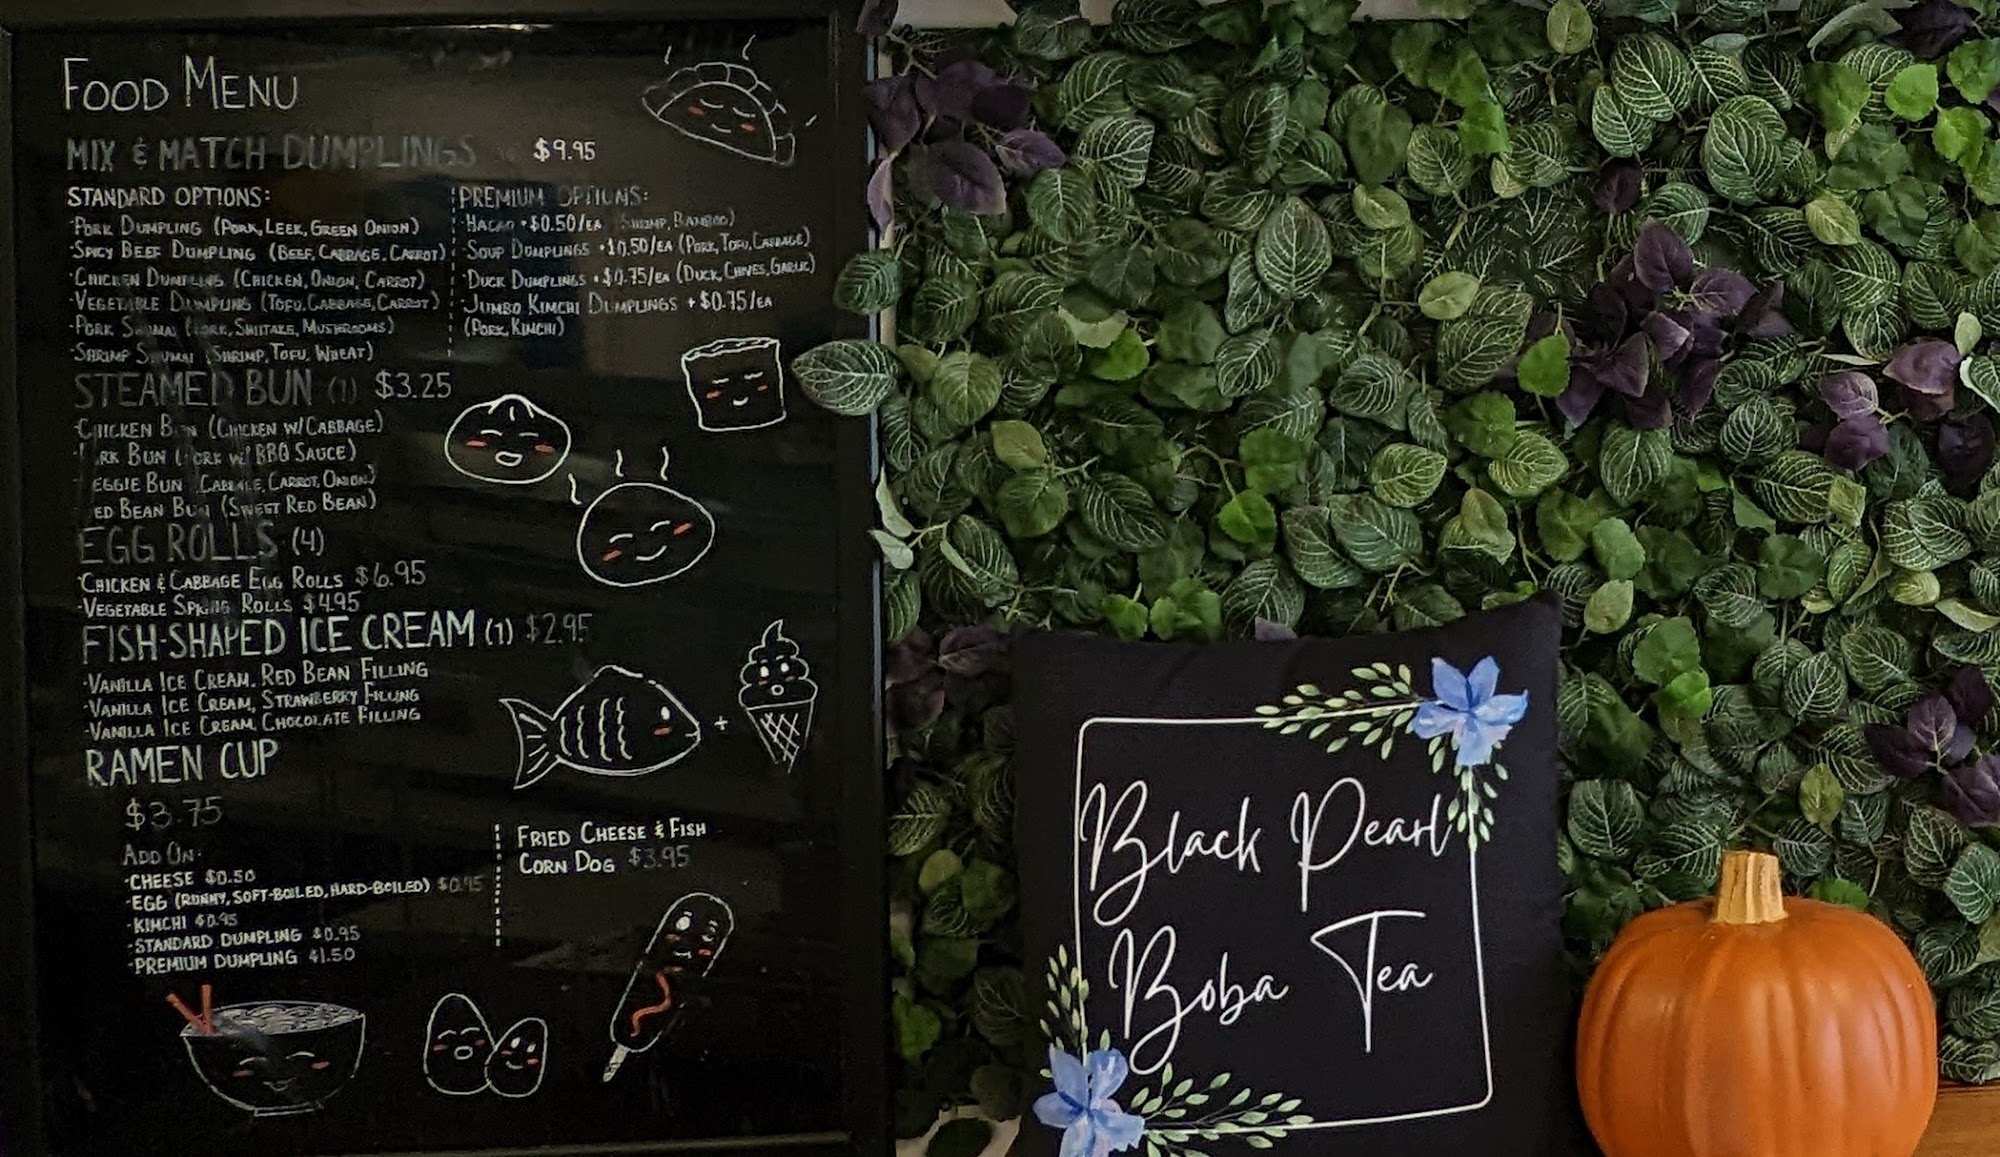 FOOD MENU
MIX & MATCH DUMPLINGS $9.95
STANDARD OPTIONS:
·PORK DUMPLING (PORK, LEEK, GREEN ONION)
·SPICY BEEF DUMPLING (BEEF, CABBAGE, CARROT)
·CHICKEN DUMPLING (CHICKEN, ONION, CARROT)
·VEGETABLE DUMPLING (TOFU, CABBAGE, CARROT)
·PORK SHUMAI (PORK, SHIITAKE, MUSHROOMS)
·SHRIMP SHUMAI (SHRIMP, TOFU, WHEAT)
PREMIUM OPTIONS:
·HACAO +$0.50/EA (SHRIMP, BAMBOO)
·SOUP DUMPLINGS +$0.50/EA (PORK, TOFU, CABBAGE)
·DUCK DUMPLINGS +$0.75/EA (DUCK, CHIVES, GARLIC)
·JUMBO KIMCHI DUMPLINGS +$0.75/EA
(PORK, KIMCHI)
STEAMED BUN (1) $3.25
·CHICKEN BUN (CHICKEN W/CABBAGE)
·PORK BUN (PORK W/ BBQ SAUCE)
·VEGGIE BUN (CABBAGE, CARROT, ONION)
·RED BEAN BUN (SWEET RED BEAN)
EGG ROLLS (4)
·CHICKEN & CABBAGE EGG ROLLS $6.95
·VEGETABLE SPRING ROLLS $4.95
FISH-SHAPED ICE CREAM (1) $2.95
·VANILLA ICE CREAM, RED BEAN FILLING
·VANILLA ICE CREAM, STRAWBERRY FILLING
·VANILLA ICE CREAM, CHOCOLATE FILLING
+
RAMEN CUP
$3.75
ADD ON:
·CHEESE $0.50
·EGG (RUNNY, SOFT-BOILED, HARD-BOILED) $0.95
·KIMCHI $0.95
·STANDARD DUMPLING $0.95
·PREMIUM DUMPLING $1.50
FRIED CHEESE & FISH
CORN DOG $3.95
Black Pearl
Boba Tea